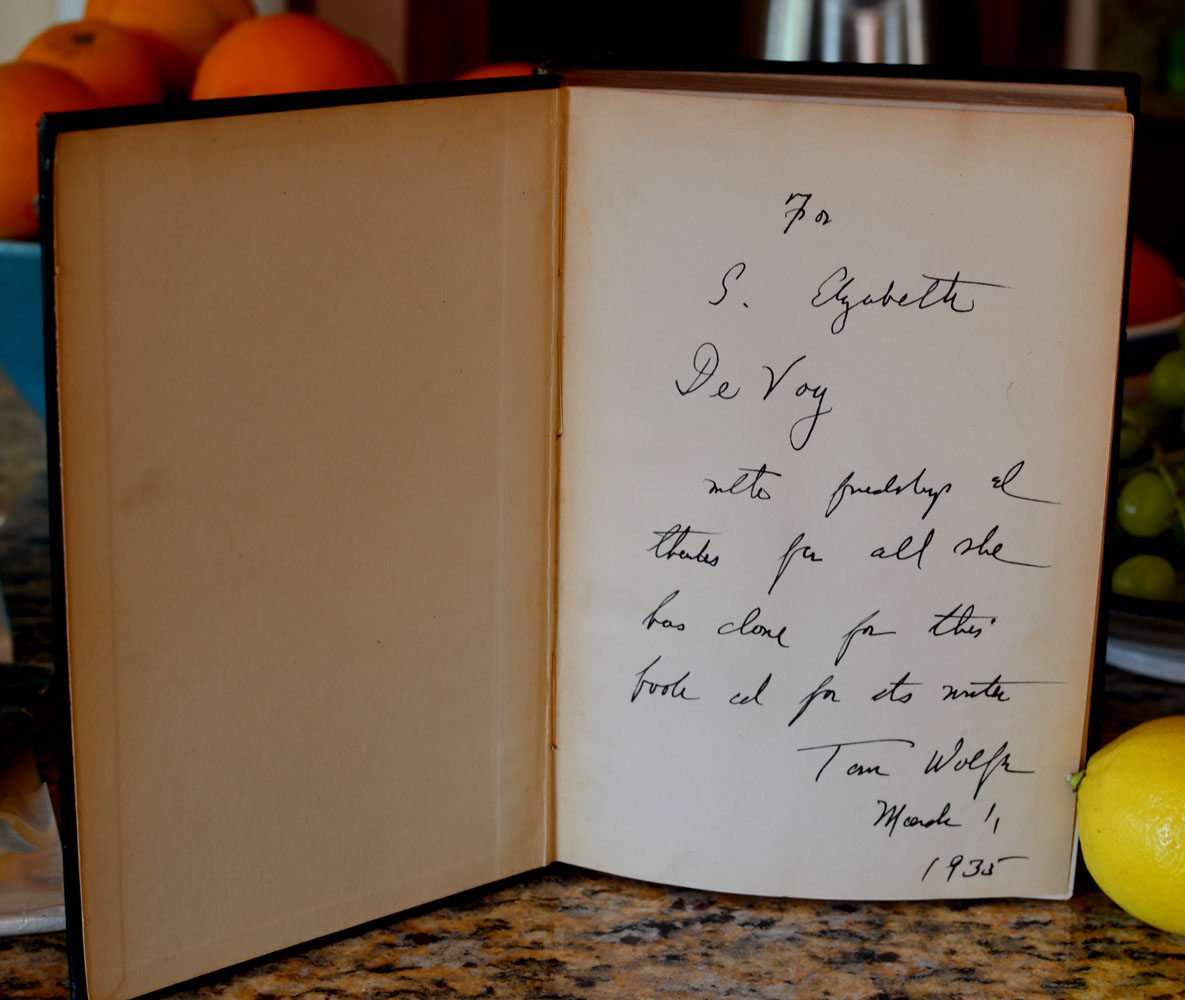 For
S. Elizabeth
De Voy
with friendship and
thanks for all she
has done for this
book and for its writer
Tom Wolfe
March 1,
1935